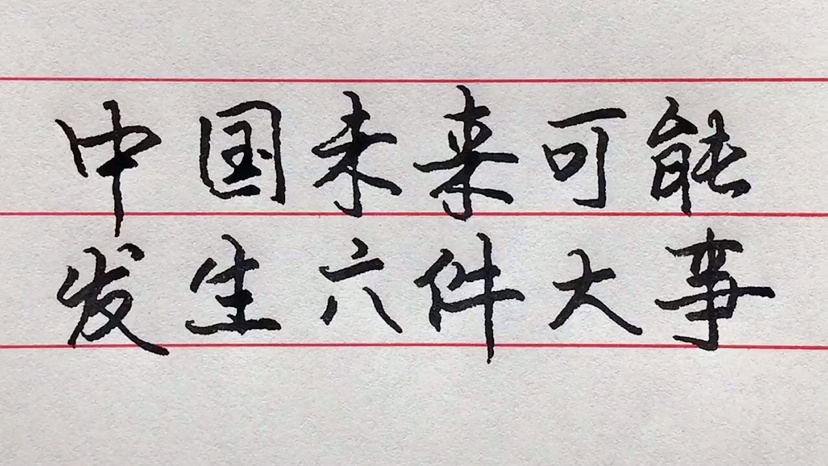 中国未来可能
发生六件大事